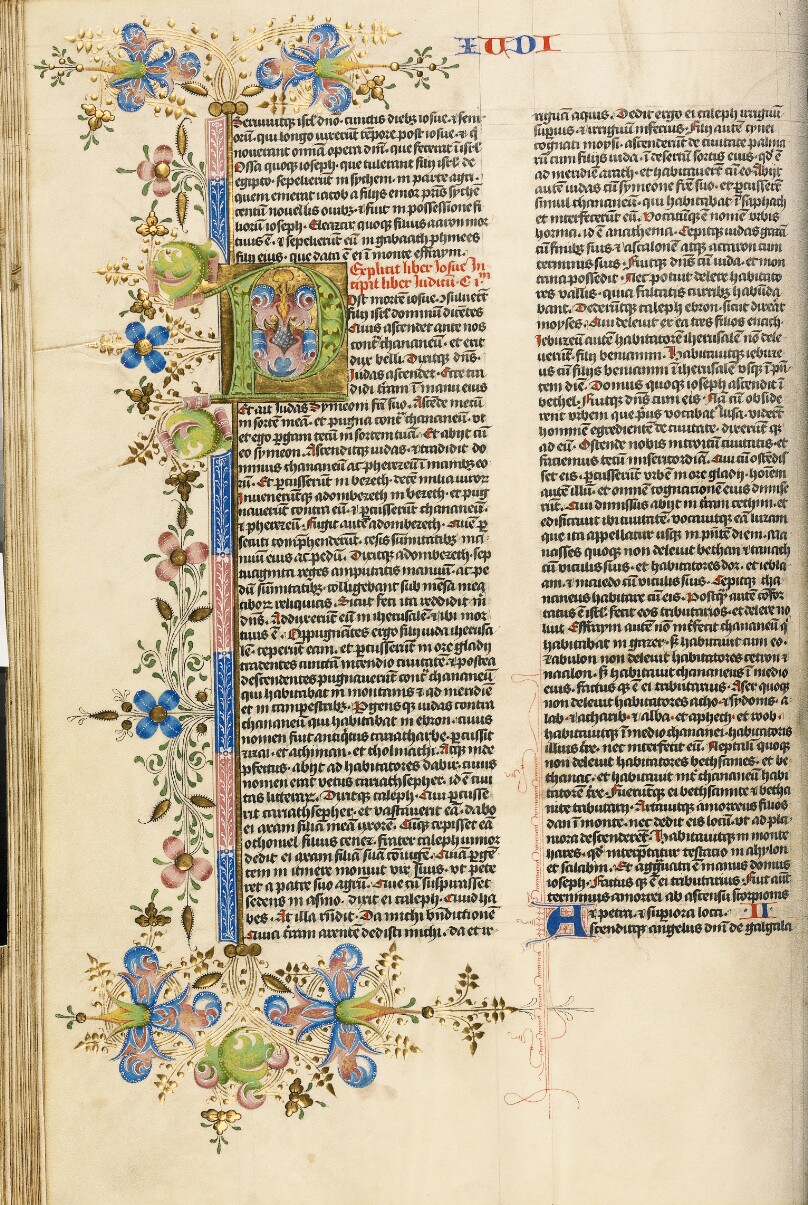 IUDI
Servivitq; isrl' dno. cunctis dieb; iosue. & seni
oru. qui longo vixerut tempore post iosue. & q
noverant omnia opera dni. que fecerat i isrl'.
Ossa quoq; ioseph. que tulerant filij isrl' de
egipto. sepelierut in sychem. in parte agri.
quem emerat iacob a filijs emor pris syche
centu novellis ovib;. & fuit in possessione fi
lioru ioseph. Eleazar quoq; filius aaron mor
tuus e. & sepelierut eu in gabaath phinees
filij eius. que data e ei i monte effraym.
Explicit liber Iosue In
cipit liber Iudicu. C. i.
Post morte iosue. osuluert
filij isrl' dominu dicetes
Quis ascendet ante nos
contra chananeu. et erit
dux belli. Dixitq; dns.
Iudas ascendet. Ecce tra
didi terram i manu eius
Et ait Iudas Symeoni fri suo. Ascede mecu
in sorte mea. et pugna contra chananeu. vt
et ego pergam tecu in sortem tua. Et abijt cu
eo symeon. Ascenditq; iudas. & tradidit do
minus chananeu ac pherezeu i manib; eo
ru. Et percusserut in bezech. dece milia viroru
Inueneritq; adombezech in bezech. et pug
nauerut contra eu. & percusserut chananeu.
& pherezeu. Fugit aute adombezech. Que per
secuti comprehenderut. cesis sumitatib; ma
nuu eius ac pedu. Dixitq; adombezech. Sep
tuaginta reges amputatis manuu. ac pe
du summitatib;. colligebant sub mesa mea
cibor; reliquias. Sicut feci ita reddidit m
dns. Adduxerut eu in iherusale. & ibi mor
tuus e. Oppugnates ergo filij iuda iherusa
le. ceperut eam. et percusserut in ore gladij
tradentes cuncta incendio ciuitate. & postea
descendentes pugnauerut contra chananeu
qui habitabat in montanis & ad meridie
et in campestrib;. Pergensq; iudas contra
chananeu qui habitabat in ebron. cuius
nomen fuit antiqtus cariatharbe. percussit
sisai. et achiman. et tholmai. Atq; inde
profectus. abijt ad habitatores dabir. cuius
nomen erat vetus cariathsepher. id e ciui
tas litterar;. Dixitq; caleph. Qui percusse
rit cariathsepher. et vastauerit ea. dabo
ei axam filia mea uxore. Cuq; cepisset ea
othoniel filius cenez. frater caleph minor
dedit ei axam filia sua coniuge. Qua perge
tem in itinere monuit vir suus. vt pete
ret a patre suo agru. Que cu suspirasset
sedens in asino. dixit ei caleph. Quid ha
bes. At illa rndit. Da michi bndictione
Quia terram arente dedisti michi. da et ir
riguam aquis. Dedit ergo ei caleph irriguu
superius. & irriguu inferius. Filij aute cynei
cognati moysi. ascenderut de ciuitate palma
ru cum filijs iuda. i desertu sortis eius. qd e
ad meridie arath. et habitauerut cu eo. Abijt
aute iudas cu symeone fre suo. et percusseru
simul chananeu. qui habitabat i saphath
et interfecerut eu. Vocatuq; e nome vrbis
horma. id e anathema. Cepitq; iudas gaza
cu finib; suis. & ascalone atq; accaron cum
terminis suis. Fuitq; dns cu iuda. et mon
tana possedit. Nec potuit delere habitato
res vallis. quia falcatis curribz habuda
bant. Dederutq; caleph ebron. sicut dixerat
moyses. Qui deleuit ex ea tres filios enach.
Iebuzeu aute habitatore iherusale no dele
uerut. filij beniamin. Habitauitq; iebuze
us cu filijs beniamin i iherusale vsq; i pn
tem die. Domus quoq; ioseph ascendit i
bethel. Fuitq; dns cum eis. Na cu obside
rent vrbem que prius vocabat lusa. videret
homine egrediente de ciuitate. dixerut q;
ad eu. Ostende nobis introitu ciuitatis. et
faciemus tecu misericordia. Qui cu ostedis
set eis. percusserut vrbe in ore gladij. hoiem
aute illu. et omne cognatione eius dimise
rut. Qui dimissus abijt in terram cethim. et
edificauit ibi ciuitate. vocauitq; ea luzam
que ita appellatur vsq; in pnte diem. Ma
nasses quoq; non deleuit bethan & tanach
cu viculis suis. et habitatores dor. et iebla
am. & macedo cu viculis suis. Cepitq; cha
naneus habitare cu eis. Postq aute cofor
tatus e isrl'. fecit eos tributarios. et delere no
luit. Effraym aute no interfecit chananeu q
habitabat in gazer. sed habitauit cum eo.
Zabulon non deleuit habitatores cetron &
naalon. sed habitauit chananeus i medio
eius. factus q; e ei tributarius. Aser quoq;
non deleuit habitatores acho. & sydonis. a
lab. & achazib. & alba. et aphech. et roob.
habitauitq; i medio chananei. habitatoris
illius tre. nec interfecit eu. Neptali quoq;
non deleuit habitatores bethsames. et be
thanac. et habitauit int chananeu habi
tatore tre. Fueruntq; ei bethsamite & betha
nite tributarij. Artauitq; amorreus filios
dan i monte. nec dedit eis locu. vt ad pla
niora descenderet. Habitauitq; in monte
hares. qd interptatur testatio in ahylon
et salabim. Et aggrauata e manus domus
ioseph. Factus q; e ei tributarius. Fuit aut
terminus amorrei ab ascensu scorpionis
& petra. & superiora loca. II
Ascenditq; angelus dni de galgala